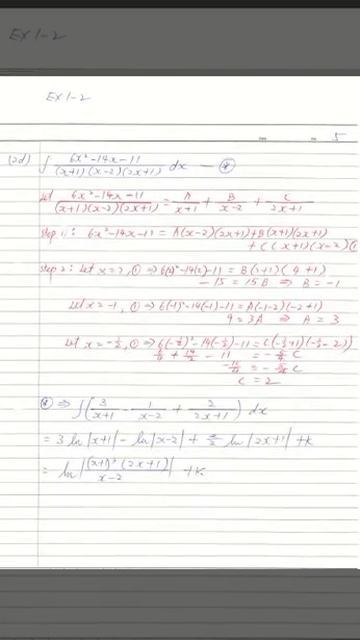 EX 1-2
EX 1-2
5
(2d) ∫ (6x²-14x-11)/((x+1)(x-2)(2x+1)) dx — ⊛
Let (6x²-14x-11)/((x+1)(x-2)(2x+1)) = A/(x+1) + B/(x-2) + C/(2x+1)
step 1: 6x²-14x-11 = A(x-2)(2x+1)+B(x+1)(2x+1)
+C(x+1)(x-2) ①
step 2: let x=2, ① ⇒ 6(2)²-14(2)-11 = B(2+1)(4+1)
-15 = 15B ⇒ B = -1
let x=-1, ① ⇒ 6(-1)²-14(-1)-11 = A(-1-2)(-2+1)
9 = 3A ⇒ A = 3
let x = -½, ① ⇒ 6(-½)²-14(-½)-11 = C(-½+1)(-½-2)
6/4 + 14/2 - 11 = -5/4 C
= -5/4 C
C = 2
⊛ ⇒ ∫(3/(x+1) - 1/(x-2) + 2/(2x+1)) dx
= 3 ln|x+1| - ln|x-2| + 2/2 ln|2x+1| + K
= ln|(x+1)³(2x+1)/(x-2)| + K